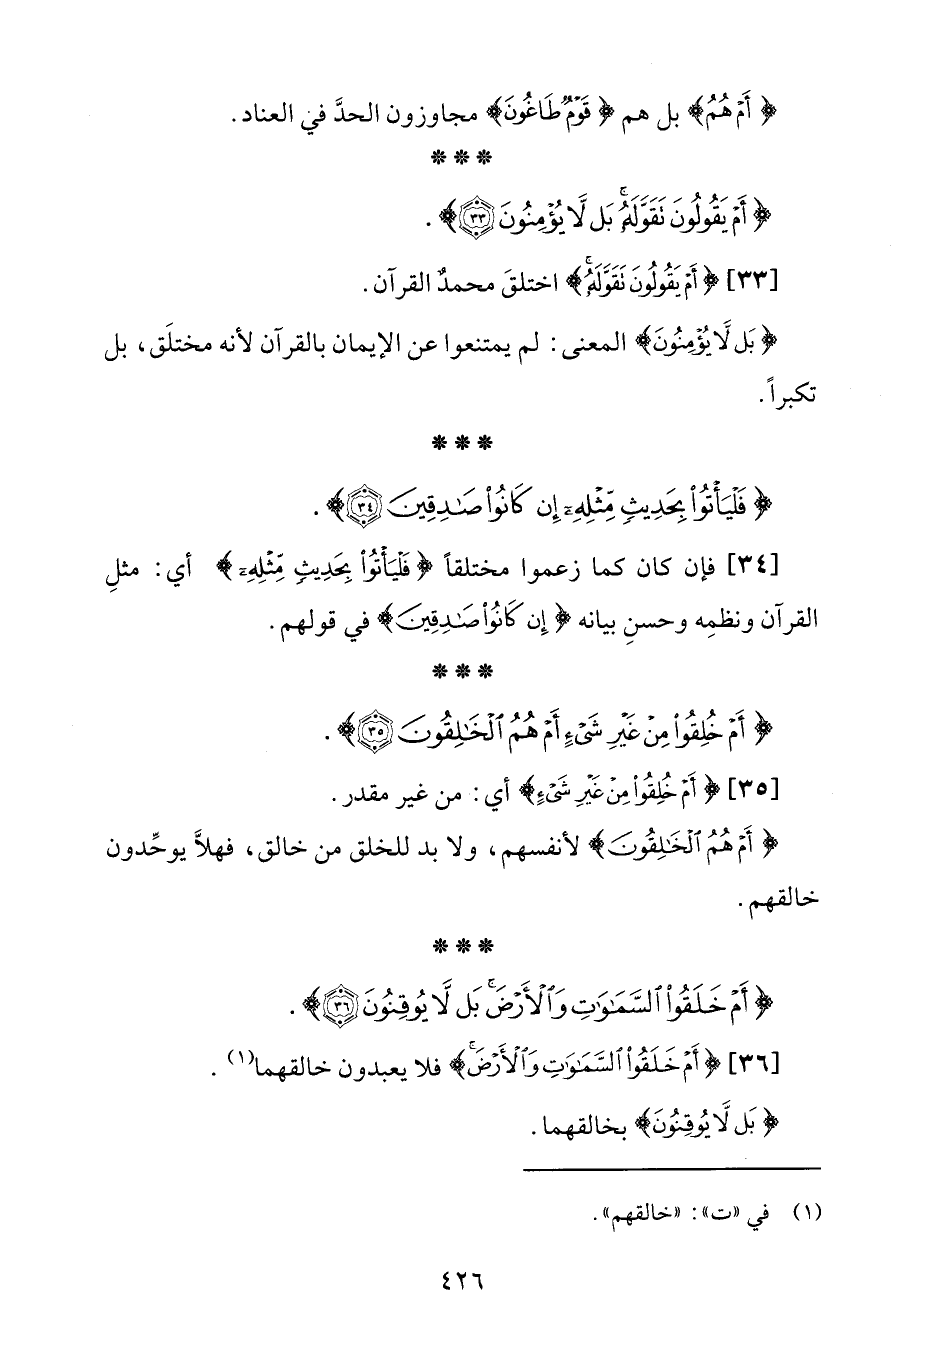 ﴿أَمْ هُمْ﴾ بل هم ﴿قَوْمٌ طَاغُونَ﴾ مجاوزون الحدَّ في العناد.
* * *
﴿أَمْ يَقُولُونَ نَقَوَّلَهُۥ ۚ بَل لَّا يُؤْمِنُونَ ٣٣﴾.
[٣٣] ﴿أَمْ يَقُولُونَ نَقَوَّلَهُۥ ۚ﴾ اختلقَ محمدٌ القرآن.
﴿بَل لَّا يُؤْمِنُونَ﴾ المعنى: لم يمتنعوا عن الإيمان بالقرآن لأنه مختلَق، بل
تكبراً.
* * *
﴿فَلْيَأْتُوا۟ بِحَدِيثٍ مِّثْلِهِۦٓ إِن كَانُوا۟ صَـٰدِقِينَ ٣٤﴾.
[٣٤] فإن كان كما زعموا مختلقاً ﴿فَلْيَأْتُوا۟ بِحَدِيثٍ مِّثْلِهِۦٓ﴾ أي: مثلِ
القرآن ونظمِه وحسنِ بيانه ﴿إِن كَانُوا۟ صَـٰدِقِينَ﴾ في قولهم.
* * *
﴿أَمْ خُلِقُوا۟ مِنْ غَيْرِ شَىْءٍ أَمْ هُمُ ٱلْخَـٰلِقُونَ ٣٥﴾.
[٣٥] ﴿أَمْ خُلِقُوا۟ مِنْ غَيْرِ شَىْءٍ﴾ أي: من غير مقدر.
﴿أَمْ هُمُ ٱلْخَـٰلِقُونَ﴾ لأنفسهم، ولا بد للخلق من خالق، فهلاَّ يوحِّدون
خالقهم.
* * *
﴿أَمْ خَلَقُوا۟ ٱلسَّمَـٰوَٰتِ وَٱلْأَرْضَ ۚ بَل لَّا يُوقِنُونَ ٣٦﴾.
[٣٦] ﴿أَمْ خَلَقُوا۟ ٱلسَّمَـٰوَٰتِ وَٱلْأَرْضَ ۚ﴾ فلا يعبدون خالقهما(١).
﴿بَل لَّا يُوقِنُونَ﴾ بخالقهما.
(١) في «ت»: «خالقهم».
٤٢٦